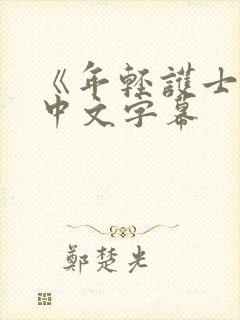 《年輕護士
中文字幕
鄭楚光